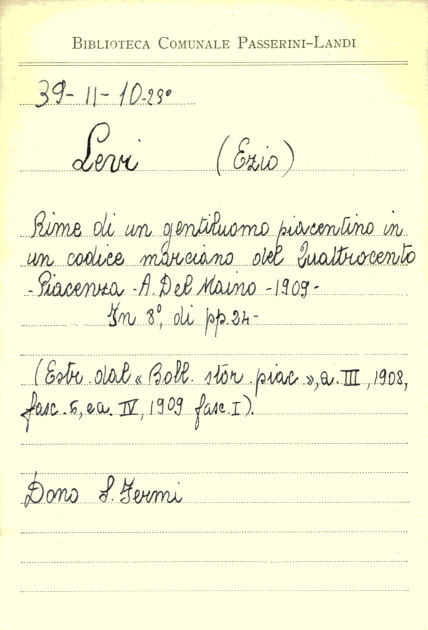 BIBLIOTECA COMUNALE PASSERINI-LANDI
39-11-10-23°
Levi (Ezio)
Rime di un gentiluomo piacentino in
un codice marciano del Quattrocento
-Piacenza -A. Del Maino -1909-
In 8°, di pp. 24-
(Estr. dal « Boll. stor. piac. », a. III, 1908,
fasc. 5, e a. IV, 1909 fasc. I).
Dono S. Fermi